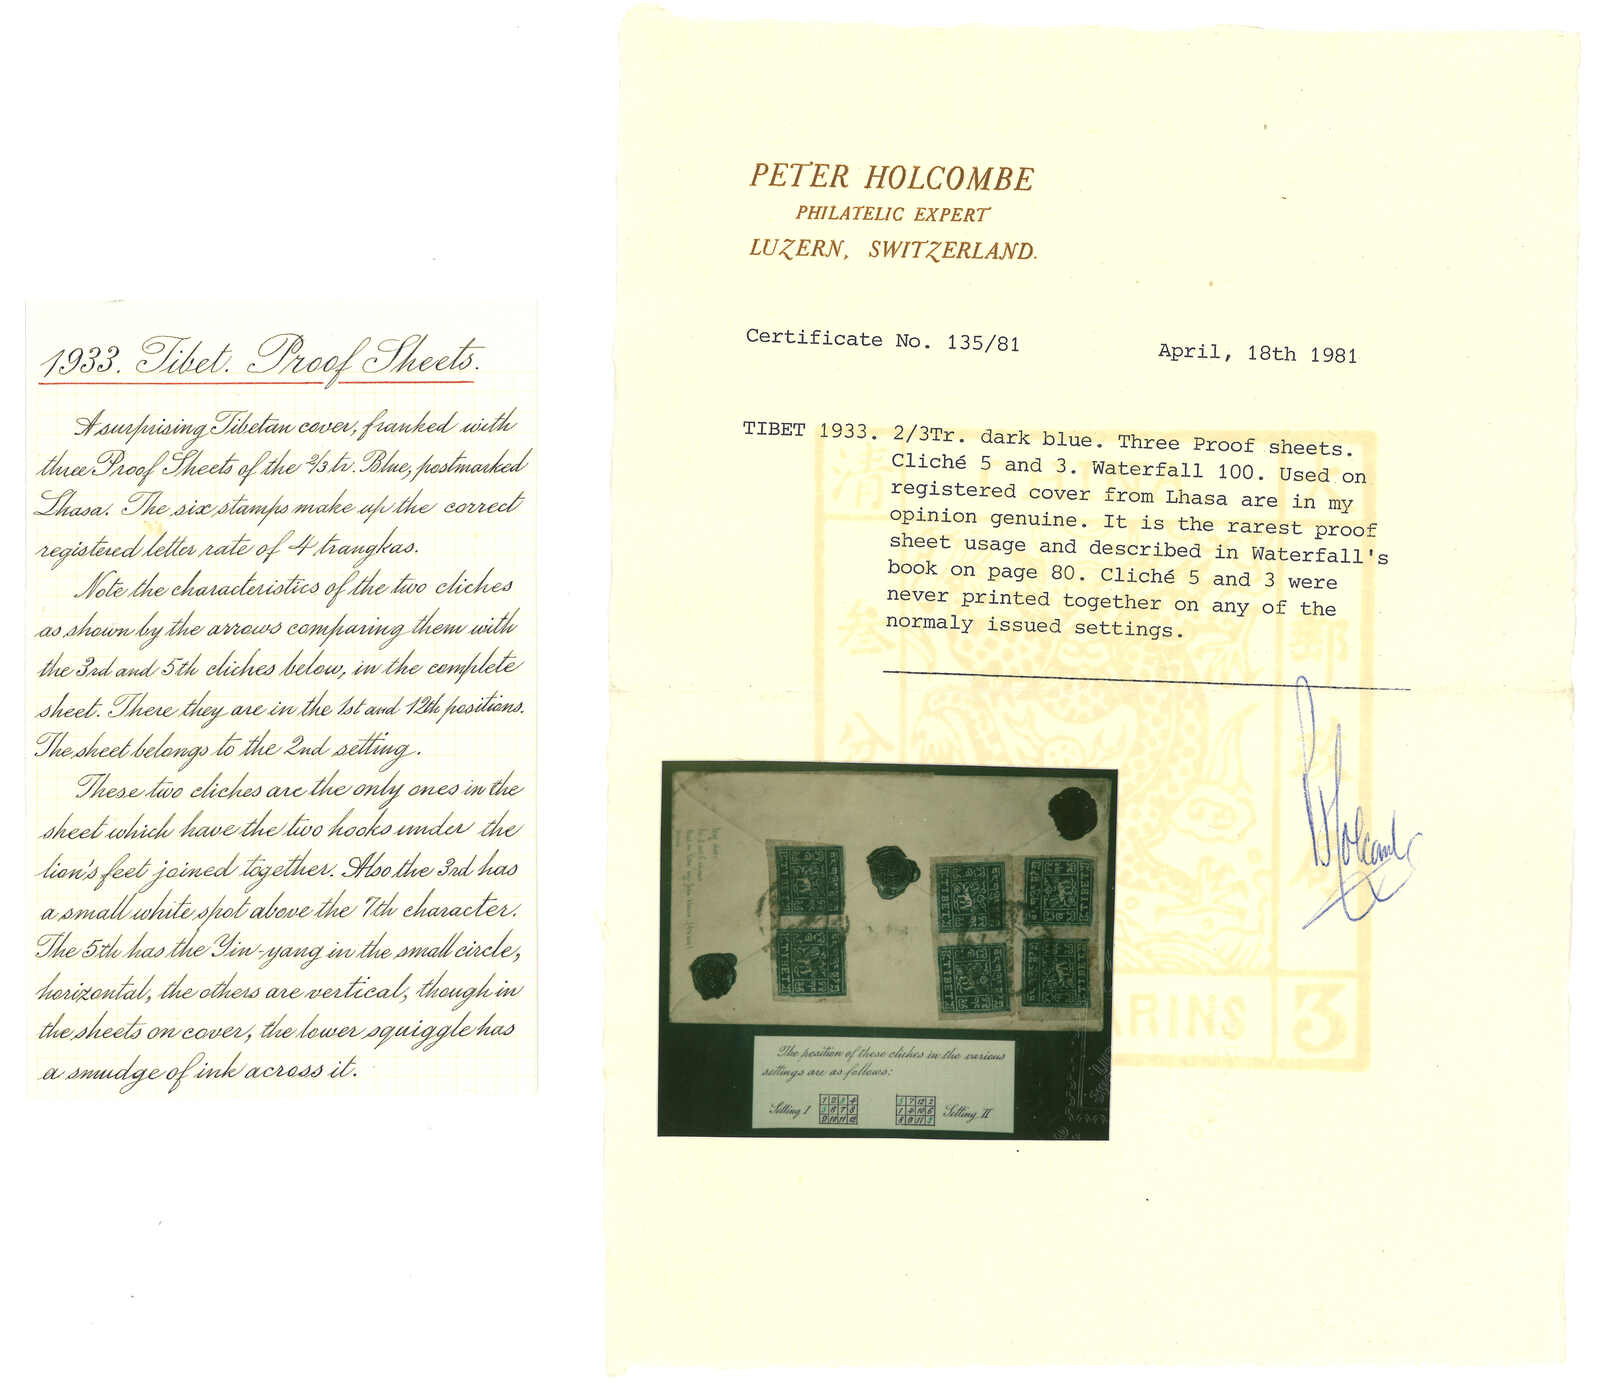 1933. Tibet. Proof Sheets.
A surprising Tibetan cover, franked with
three Proof Sheets of the 2/3 tr. Blue, postmarked
Lhasa. The six stamps make up the correct
registered letter rate of 4 trangkas.
Note the characteristics of the two cliches
as shown by the arrows comparing them with
the 3rd and 5th cliches below, in the complete
sheet. There they are in the 1st and 12th positions.
The sheet belongs to the 2nd setting.
These two cliches are the only ones in the
sheet which have the two hooks under the
lion's feet joined together. Also the 3rd has
a small white spot above the 7th character.
The 5th has the Yin-yang in the small circle,
horizontal, the others are vertical, though in
the sheets on cover, the lower squiggle has
a smudge of ink across it.
PETER HOLCOMBE
PHILATELIC EXPERT
LUZERN, SWITZERLAND.
Certificate No. 135/81
April, 18th 1981
TIBET 1933. 2/3Tr. dark blue. Three Proof sheets.
Cliché 5 and 3. Waterfall 100. Used on
registered cover from Lhasa are in my
opinion genuine. It is the rarest proof
sheet usage and described in Waterfall's
book on page 80. Cliché 5 and 3 were
never printed together on any of the
normaly issued settings.
P Holcombe
清
郵
叁
分
RINS
3
TIBET
TIBET
TIBET
TIBET
TIBET
TIBET
The position of these cliches in the various
settings are as follows:
Setting I
1 2 3 4
5 6 7 8
9 10 11 12
Setting II